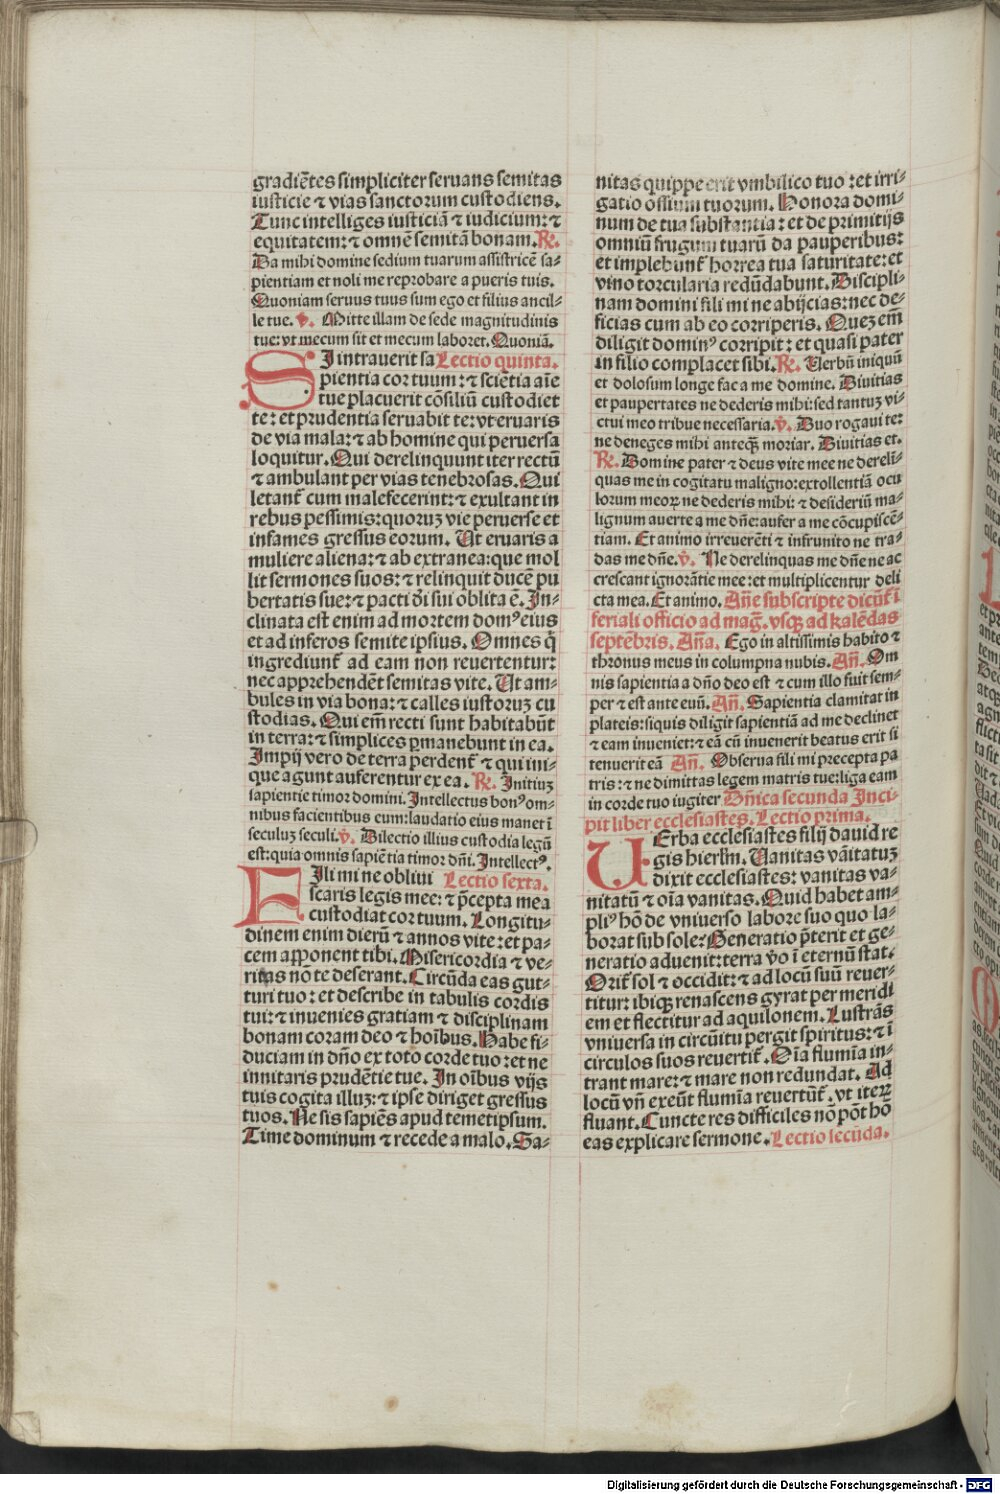 gradiētes simpliciter seruans semitas
iusticie ⁊ vias sanctorum custodiens.
Tunc intelliges iusticiā ⁊ iudicium: ⁊
equitatem: ⁊ omnē semitā bonam. R̷.
Da mihi domine sedium tuarum assistricē sa-
pientiam et noli me reprobare a pueris tuis.
Quoniam seruus tuus sum ego et filius ancil-
le tue. v̷. Mitte illam de sede magnitudinis
tue: vt mecum sit et mecum laboret. Quoniā.
SI intrauerit sa Lectio quinta.
pientia cor tuum: ⁊ sciētia aīe
tue placuerit cōsiliū custodiet
te: et prudentia seruabit te: vt eruaris
de via mala: ⁊ ab homine qui peruersa
loquitur. Qui derelinquunt iter rectū
⁊ ambulant per vias tenebrosas. Qui
letant᷑ cum malefecerint: ⁊ exultant in
rebus pessimis: quoruꝫ vie peruerse et
infames gressus eorum. Ut eruaris a
muliere aliena: ⁊ ab extranea: que mol
lit sermones suos: ⁊ relinquit ducē pu
bertatis sue: ⁊ pacti dī sui oblita ē. In-
clinata est enim ad mortem domꝰ eius
et ad inferos semite ipsius. Omnes q̄
ingrediunt᷑ ad eam non reuertentur:
nec apprehendēt semitas vite. Ut am-
bules in via bona: ⁊ calles iustoruꝫ cu
stodias. Qui em̄ recti sunt habitabūt
in terra: ⁊ simplices ꝑmanebunt in ea.
Impij vero de terra perdent᷑ ⁊ qui ini-
que agunt auferentur ex ea. R̷. Initiuꝫ
sapientie timor domini. Intellectus bonꝰ om-
nibus facientibus eum: laudatio eius manet ī
seculuꝫ seculi. v̷. Dilectio illius custodia legū
est: quia omnis sapiētia timor dn̄i. Intellectꝰ.
FIli mi ne obliui Lectio sexta.
scaris legis mee: ⁊ p̄cepta mea
custodiat cor tuum. Longitu-
dinem enim dierū ⁊ annos vite: et pa-
cem apponent tibi. Misericordia ⁊ ve-
ritas nō te deserant. Circūda eas gut-
turi tuo: et describe in tabulis cordis
tui: ⁊ inuenies gratiam ⁊ disciplinam
bonam coram deo ⁊ hoībus. Habe fi-
duciam in dn̄o ex toto corde tuo: et ne
innitaris prudētie tue. In oībus vijs
tuis cogita illuꝫ: ⁊ ipse diriget gressus
tuos. Ne sis sapiēs apud temetipsum.
Time dominum ⁊ recede a malo. Sa-
nitas quippe erit vmbilico tuo: et irri-
gatio ossium tuorum. Honora domi-
num de tua substantia: et de primitijs
omniū frugum tuarū da pauperibus:
et implebunt᷑ horrea tua saturitate: et
vino torcularia redūdabunt. Discipli-
nam domini fili mi ne abijcias: nec de-
ficias cum ab eo corriperis. Quez em̄
diligit dominꝰ corripit: et quasi pater
in filio complacet sibi. R̷. Verbū iniquū
et dolosum longe fac a me domine. Diuitias
et paupertates ne dederis mihi: sed tantuꝫ vi-
ctui meo tribue necessaria. v̷. Duo rogaui te:
ne deneges mihi anteqꝫ moriar. Diuitias et.
R̷. Domine pater ⁊ deus vite mee ne dereli-
quas me in cogitatu maligno: extollentiā ocu
lorum meoꝝ ne dederis mihi: ⁊ desideriū ma-
lignum auerte a me dn̄e: aufer a me cōcupiscē-
tiam. Et animo irreuerēti ⁊ infrunito ne tra-
das me dn̄e. v̷. Ne derelinquas me dn̄e ne ac
crescant ignorātie mee: et multiplicentur deli
cta mea. Et animo. An̄e subscripte dicūt᷑ ī
feriali officio ad maḡ. vsqꝫ ad kalēdas
septēbris. An̄a. Ego in altissimis habito ⁊
thronus meus in columpna nubis. An̄. Om
nis sapientia a dn̄o deo est ⁊ cum illo fuit sem-
per ⁊ est ante euū. An̄. Sapientia clamitat in
plateis: siquis diligit sapientiā ad me declinet
⁊ eam inueniet: ⁊ eā cū inuenerit beatus erit si
tenuerit eā An̄. Obserua fili mi precepta pa
tris: ⁊ ne dimittas legem matris tue: liga eam
in corde tuo iugiter Dn̄ica secunda Inci-
pit liber ecclesiastes. Lectio prima.
UErba ecclesiastes filij dauid re
gis hierl̄m. Vanitas vāitatuꝫ
dixit ecclesiastes: vanitas va-
nitatū ⁊ oīa vanitas. Quid habet am-
pliꝰ hō de vniuerso labore suo quo la-
borat sub sole: Generatio p̄terit et ge-
neratio aduenit: terra v̊o ī eternū stat.
Orit᷑ sol ⁊ occidit: ⁊ ad locū suū reuer-
titur: ibiqꝫ renascens gyrat per meridi
em et flectitur ad aquilonem. Lustrās
vniuersa in circūitu pergit spiritus: ⁊ ī
circulos suos reuertit᷑. Oīa flumīa in-
trant mare: ⁊ mare non redundat. Ad
locū vn̄ exeūt flumīa reuertūt᷑. vt iterꝝ
fluant. Cuncte res difficiles nō pōt hō
eas explicare sermone. Lectio secūda.
Digitalisierung gefördert durch die Deutsche Forschungsgemeinschaft - DFG